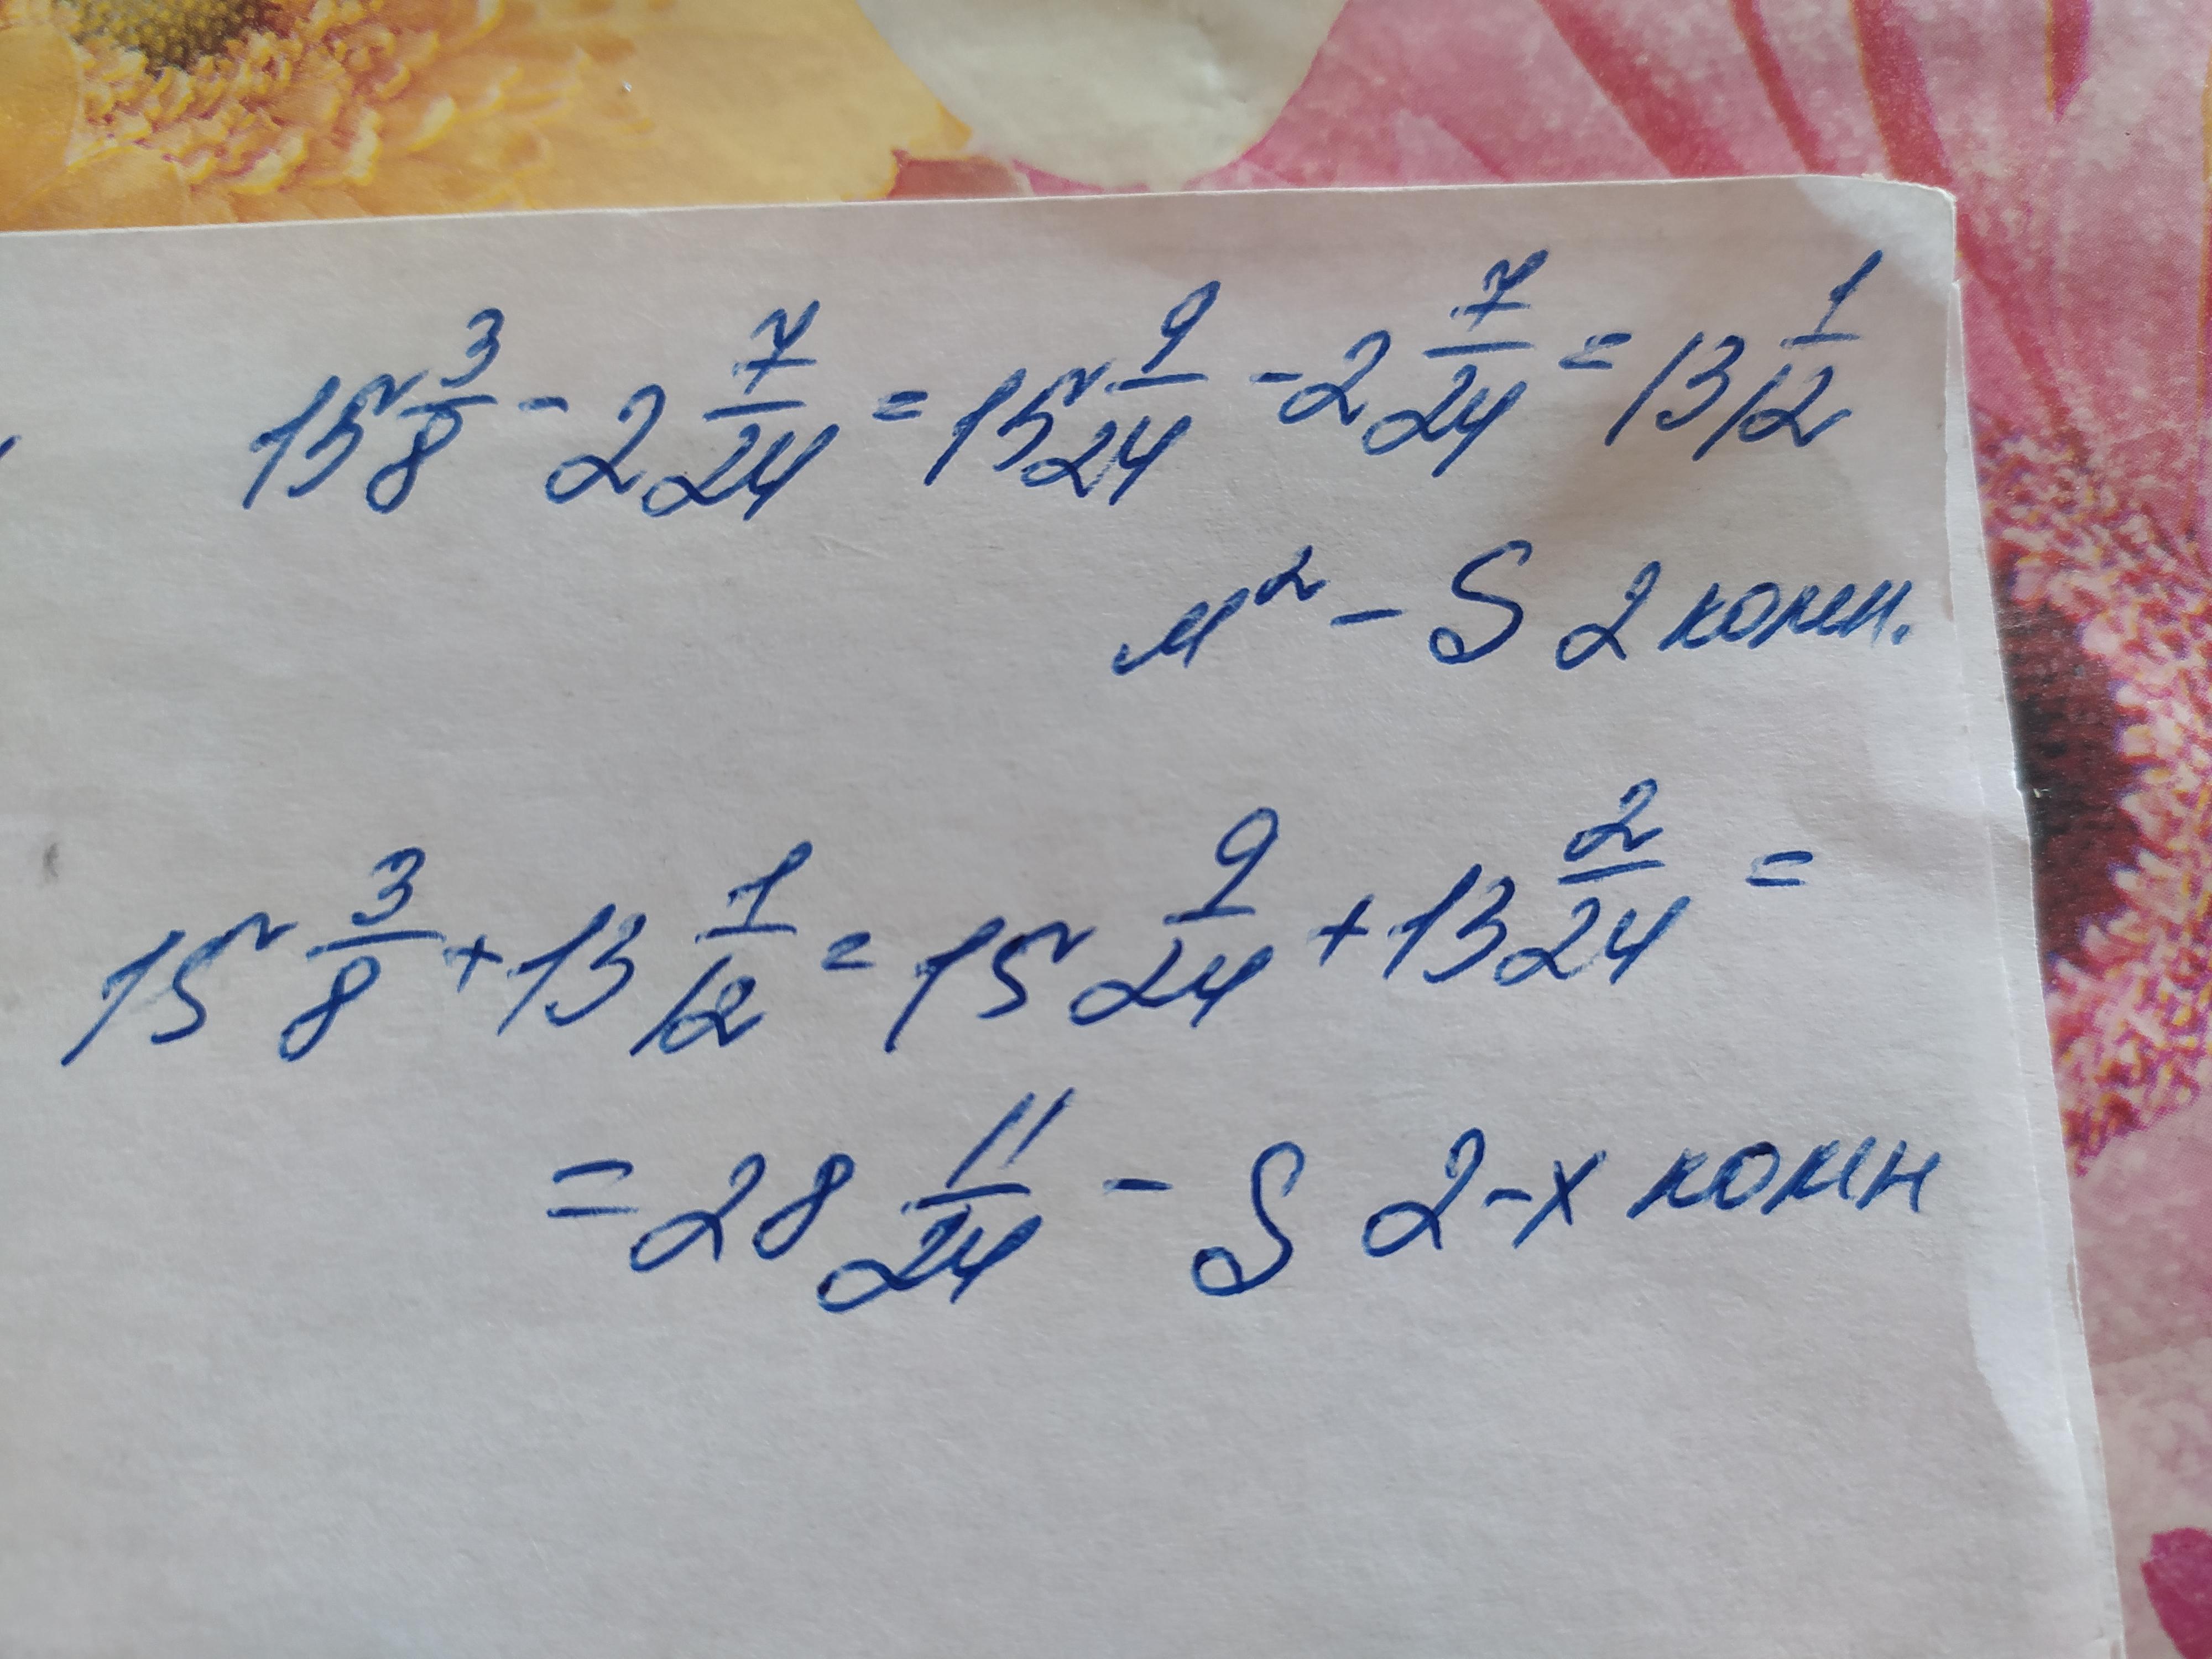 15 3/8 - 2 7/24 = 15 9/24 - 2 7/24 = 13 1/12
м² - S 2 комн.
15 3/8 + 13 1/12 = 15 9/24 + 13 2/24 =
= 28 11/24 - S 2-х комн